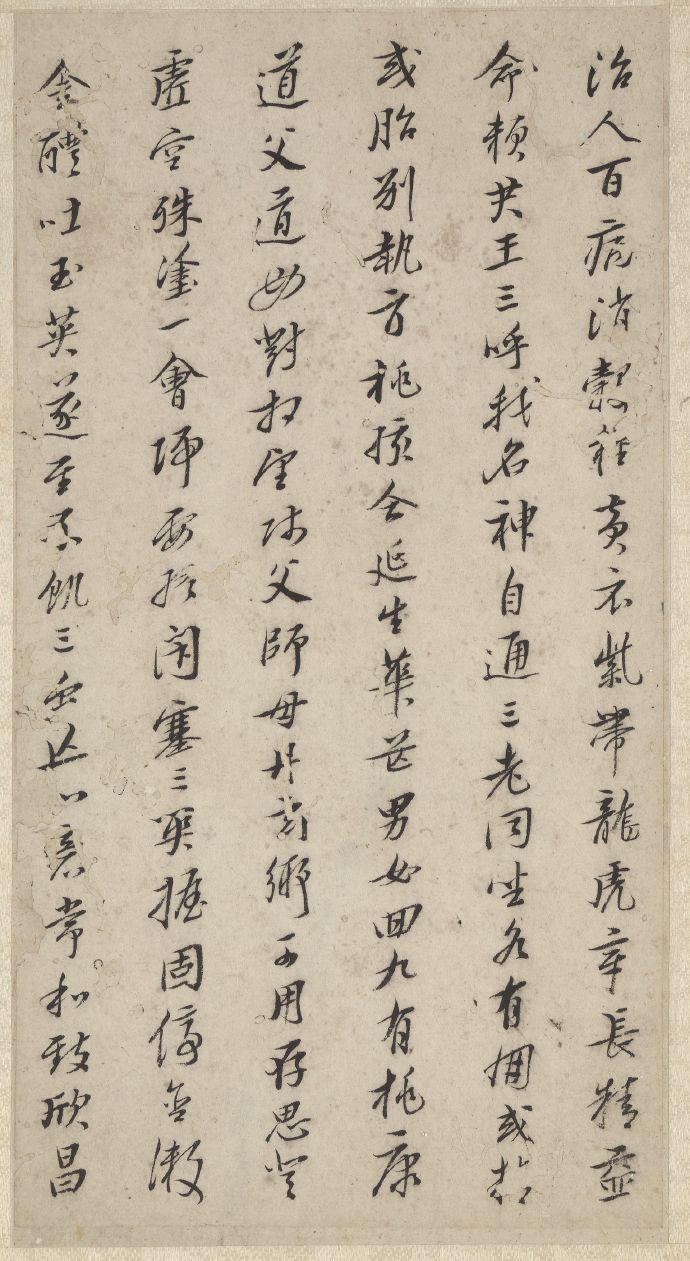 治人百病消穀粮黄衣紫帶龍虎章長精益
命賴君王三呼我名神自通三老同坐各有朋或精
或胎別執方桃孩合延生華芒男女回九有桃康
道父道母對相望師父師母丹玄鄉可用存思登
虛空殊塗一會歸要終閉塞三關握固停含漱
金醴吐玉英遂至不飢三蟲亡心意常和致欣昌